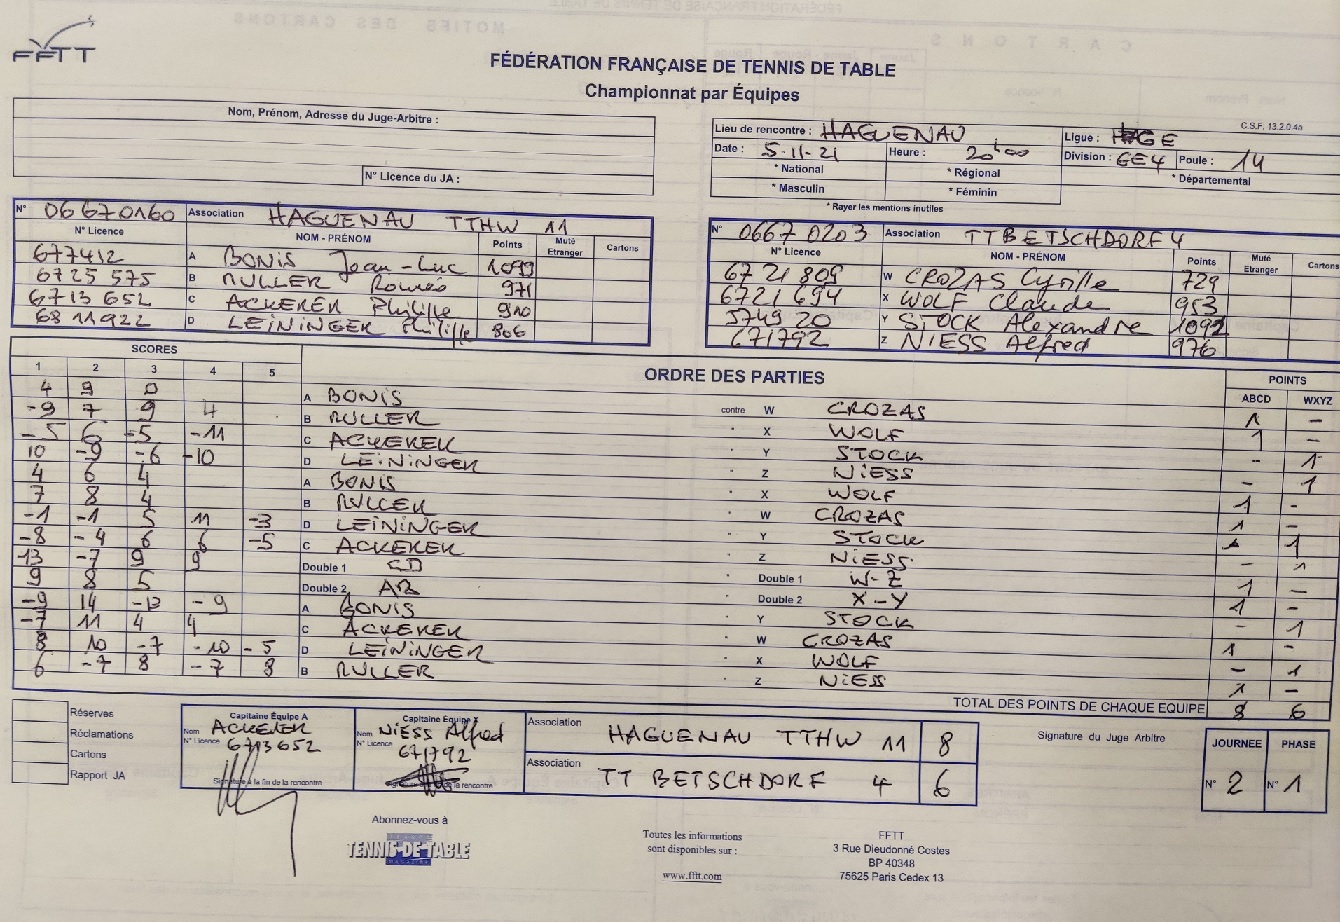 FFTT
FÉDÉRATION FRANÇAISE DE TENNIS DE TABLE
Championnat par Équipes
C.S.F. 13.2.0.4a
Nom, Prénom, Adresse du Juge-Arbitre :
N° Licence du JA :
Lieu de rencontre : HAGUENAU Ligue : GE
Date : 5-11-21 Heure : 20h00 Division : GE4 Poule : 14
* National * Régional * Départemental
* Masculin * Féminin
* Rayer les mentions inutiles
N° 06670160 Association HAGUENAU TTHW 11
N° Licence NOM - PRÉNOM Points Muté Etranger Cartons
677412 A BONIS Jean-Luc 1099
6725 575 B RULLER Roméo 971
6713 652 C ACKERER Philippe 910
68 11922 D LEININGER Philippe 806
N° 0667 0203 Association TT BETSCHDORF 4
N° Licence NOM - PRÉNOM Points Muté Etranger Cartons
67 21 809 W CROZAS Cyrille 729
6721 694 X WOLF Claude 953
5749 20 Y STOCK Alexandre 1092
671792 Z NIESS Alfred 976
SCORES ORDRE DES PARTIES POINTS
1 2 3 4 5 ABCD WXYZ
4 9 0 A BONIS contre W CROZAS 1 -
-9 7 9 4 B RULLER " X WOLF 1 -
-5 6 -5 -11 C ACKERER " Y STOCK - 1
10 -9 -6 -10 D LEININGER " Z NIESS - 1
4 6 4 A BONIS " X WOLF 1 -
7 8 4 B RULLER " W CROZAS 1 -
-1 -1 5 11 -3 D LEININGER " Y STOCK 1
-8 -4 6 6 -5 C ACKERER " Z NIESS - 1
-13 -7 9 9 Double 1 CD " Double 1 W-Z 1 -
9 8 5 Double 2 AB " Double 2 X-Y 1 -
-9 14 -9 A BONIS " Y STOCK - 1
-7 11 4 4 C ACKERER " W CROZAS 1 -
8 10 -7 -10 -5 D LEININGER " X WOLF - 1
6 -7 8 -7 8 B RULLER " Z NIESS 1 -
TOTAL DES POINTS DE CHAQUE EQUIPE 8 6
Réserves
Réclamations
Cartons
Rapport JA
Capitaine Équipe A
Nom ACKERER
N° Licence 6713652
Signature à la fin de la rencontre
Capitaine Équipe
Nom NIESS Alfred
N° Licence 671792
la rencontre
Association HAGUENAU TTHW 11 8
Association TT BETSCHDORF 4 6
Signature du Juge Arbitre
JOURNEE PHASE
N° 2 N° 1
Abonnez-vous à
TENNIS DE TABLE
MAGAZINE
Toutes les informations
sont disponibles sur :
www.fftt.com
FFTT
3 Rue Dieudonné Costes
BP 40348
75625 Paris Cedex 13